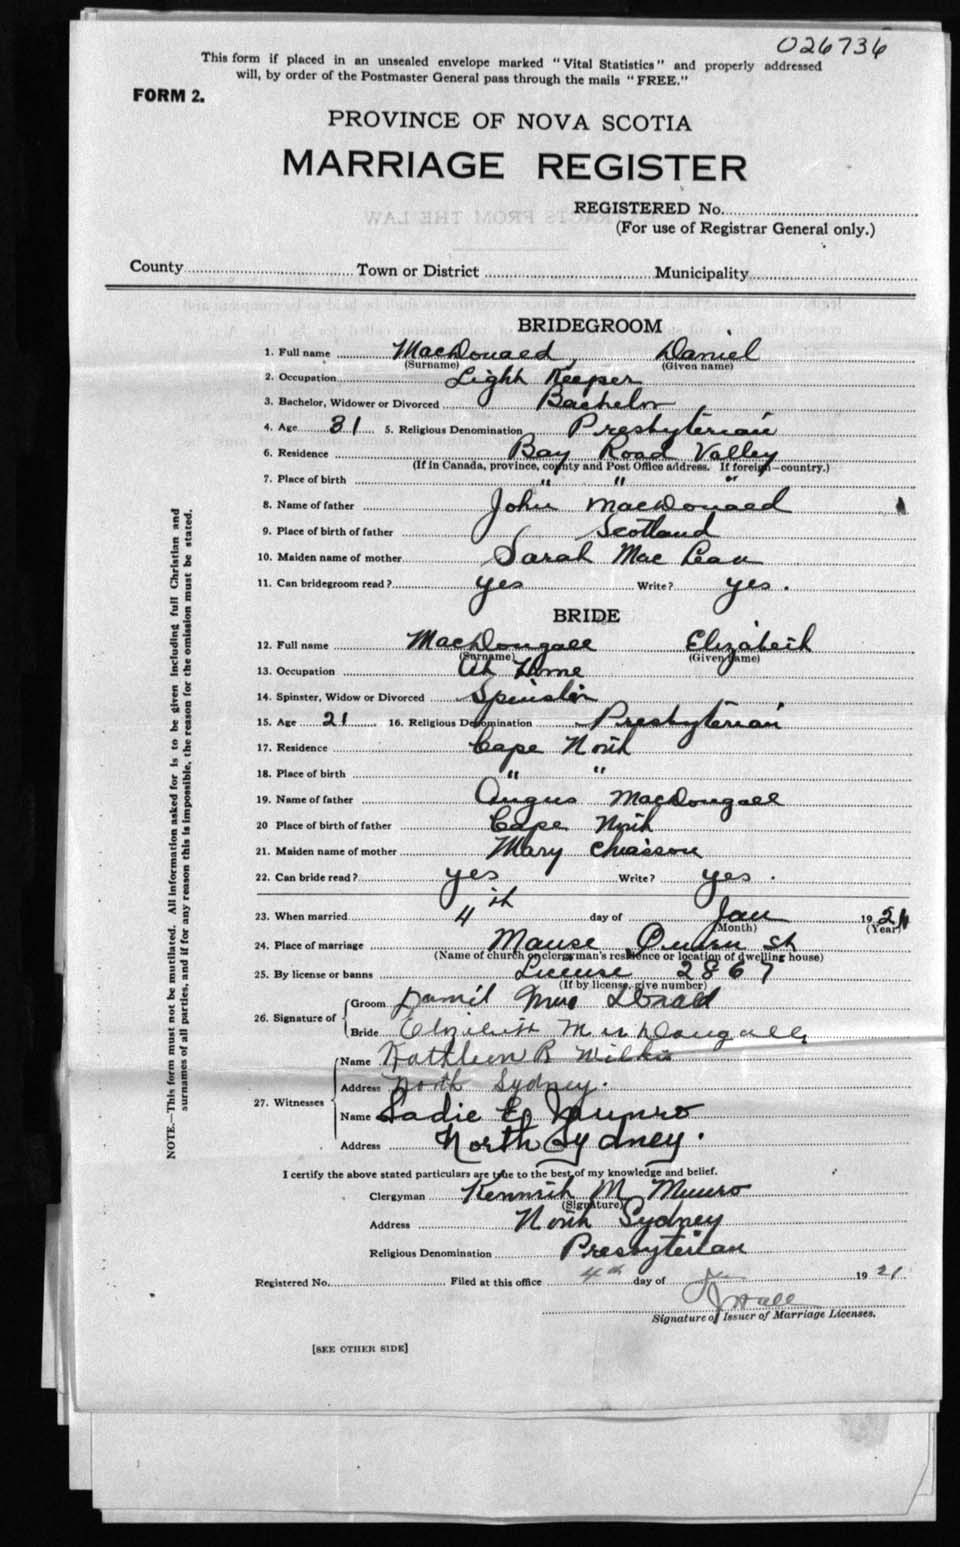 026736
This form if placed in an unsealed envelope marked "Vital Statistics" and properly addressed
will, by order of the Postmaster General pass through the mails "FREE."
FORM 2.
PROVINCE OF NOVA SCOTIA
MARRIAGE REGISTER
REGISTERED No.
(For use of Registrar General only.)
County Town or District Municipality
BRIDEGROOM
1. Full name MacDonald, Daniel
(Surname) (Given name)
2. Occupation Light Keeper
3. Bachelor, Widower or Divorced Bachelor
4. Age 31 5. Religious Denomination Presbyterian
6. Residence Bay Road Valley
(If in Canada, province, county and Post Office address. If foreign—country.)
7. Place of birth " " "
8. Name of father John MacDonald
9. Place of birth of father Scotland
10. Maiden name of mother Sarah Mac Lean
11. Can bridegroom read? yes Write? yes.
BRIDE
12. Full name MacDougall Elizabeth
(Surname) (Given name)
13. Occupation At Home
14. Spinster, Widow or Divorced Spinster
15. Age 21 16. Religious Denomination Presbyterian
17. Residence Cape North
18. Place of birth " "
19. Name of father Angus MacDougall
20 Place of birth of father Cape North
21. Maiden name of mother Mary Chiasson
22. Can bride read? yes Write? yes.
23. When married 4th day of Jan 1921
(Month) (Year)
24. Place of marriage Manse Queen St
(Name of church or clergyman's residence or location of dwelling house)
25. By license or banns License 2867
(If by license, give number)
26. Signature of Groom Daniel Mac Donald
Bride Elizabeth MacDougall
27. Witnesses Name Kathleen R Wilkie
Address North Sydney.
Name Sadie E. Munro
Address North Sydney.
I certify the above stated particulars are true to the best of my knowledge and belief.
Clergyman Kenneth M. Munro
(Signature)
Address North Sydney
Religious Denomination Presbyterian
Registered No. Filed at this office 4th day of Jan 1921
Hall
Signature of Issuer of Marriage Licenses.
[SEE OTHER SIDE]
NOTE.—This form must not be mutilated. All information asked for is to be given including full Christian and
surnames of all parties, and if for any reason this is impossible, the reason for the omission must be stated.